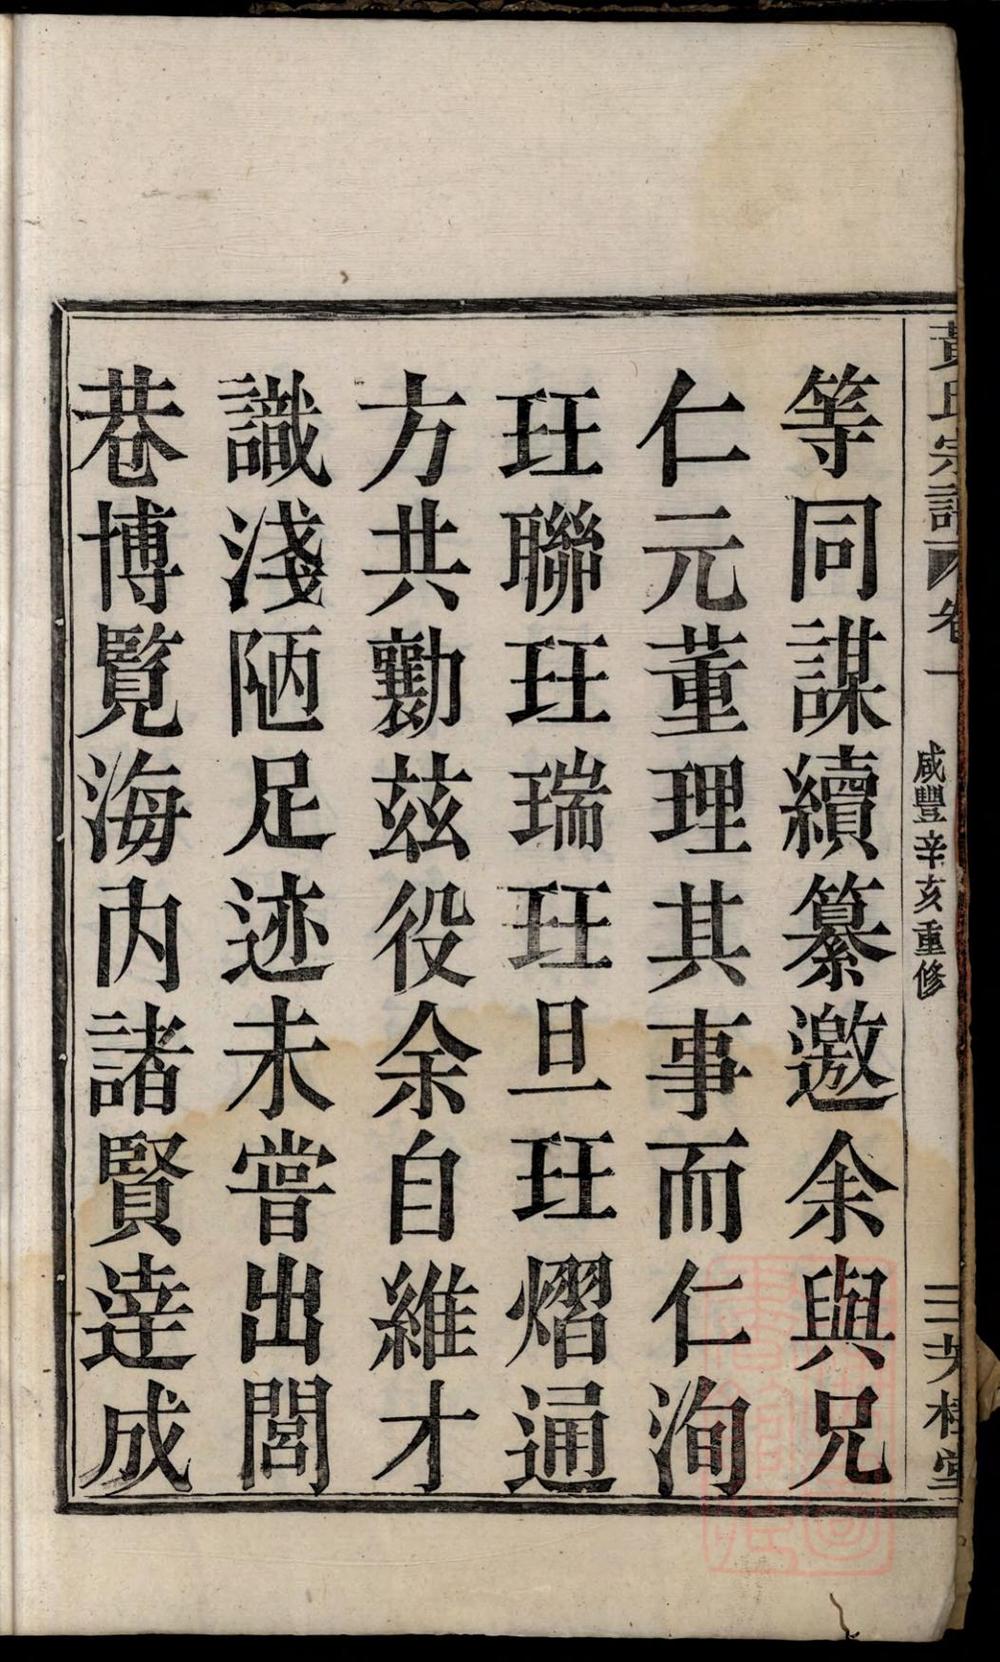 黃氏宗譜 卷一 咸豐辛亥重修 三 芳桂堂
等同謀續纂邀余與兄
仁元董理其事而仁洵
玨聯玨玨瑞玨旦玨熠通
方共勷茲役余自維才
識淺陋足迹未嘗出閭
巷博覽海內諸賢達成